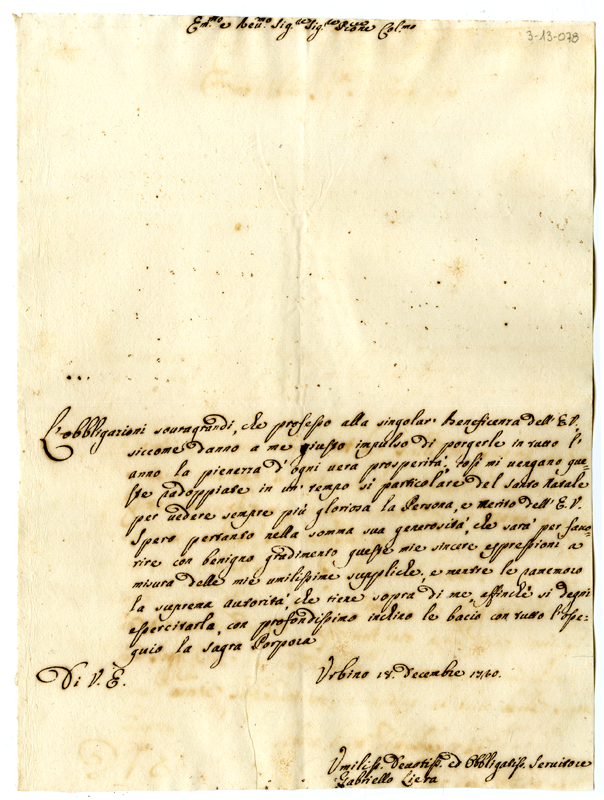 Em.mo e Reu.mo Sig.re Sig.re P'rone Col.mo
3-13-078
L'obbligazioni souragrandi, che professo alla singolar beneficenza dell'E.V.
siccome danno a me giusto impulso di porgerle in tutto l'
anno la pienezza d'ogni vera prosperità, così mi vengano que=
ste radoppiate in un tempo sì particolare del Santo Natale
per vedere sempre più gloriosa la Persona, e merito dell'E.V.
Spero pertanto nella somma sua generosità, che sarà per fauo=
rire con benigno gradimento queste mie sincere espressioni a
misura delle mie umilissime suppliche; e mentre le
la suprema autorità, che tiene sopra di me, affinchè si degni
essercitarla, con profondissimo inchino le bacio con tutto l'osse=
quio la Sagra Porpora
Di V. E.
Urbino 18. Decembre 1740.
Umiliss. Deuotiss. ed Obbligatiss. Seruitore
Gabriello